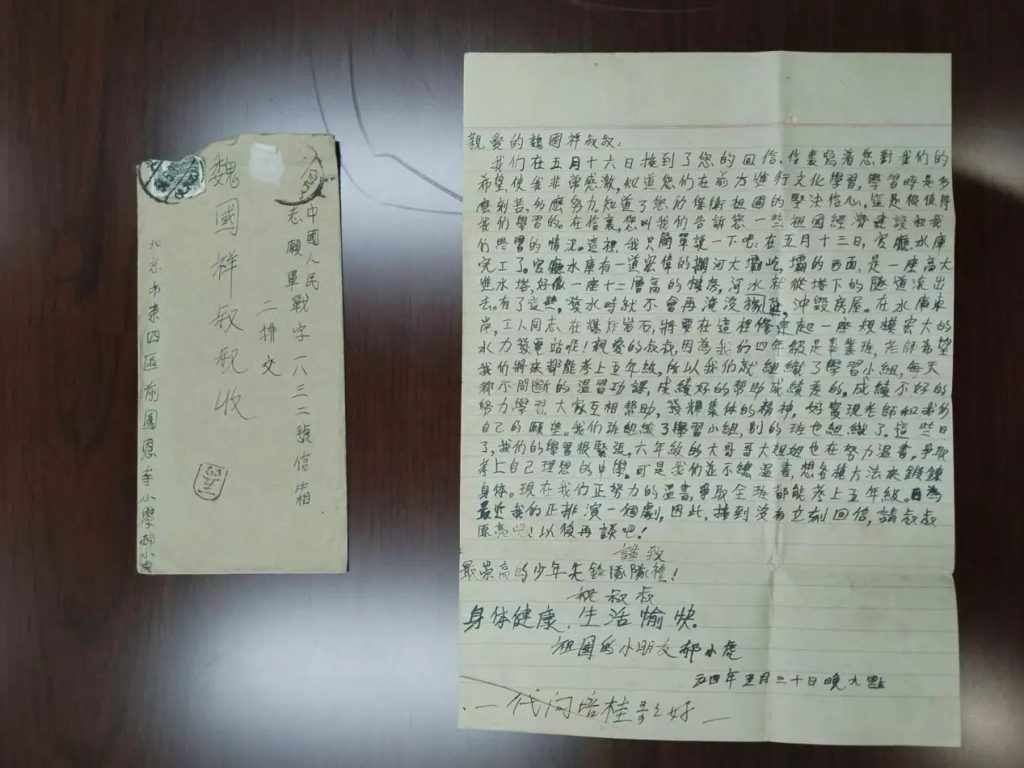 中國人民
志願軍戰字一八三二號信箱
二排交
魏國祥叔叔收
北京市東四區前圓恩寺小學郝小虎
親愛的魏國祥叔叔:
我们在五月十六日接到了您的回信。信裏寫着您對我们的
希望使我非常感激,知道您们在前方進行文化學習,學習時是多
麽刻苦,多麽努力知道了您们保衛祖國的堅決信心。這是很值得
我们學習的。在信裏,您叫我们告訴您一些祖國經濟建設和我
们學習的情況。這裡我只簡單說一下吧:在五月十三日,官廳水庫
完工了。官廳水庫有一道宏偉的攔河大壩屹,壩的西面,是一座高大
進水塔,好像一座十二層高的樓房,河水就從塔下的隧道流出
去。有了這些,發水時就不會再淹没穐莊,沖毀房屋。在水庫東
岸,工人同志,在爆炸岩石,將要在這裡修建起一座規模宏大的
水力發電站呢!親愛的叔叔,因為我们四年級是畢業班,老師希望
我们將來都能考上五年級,所以我们就組織了學習小組,每天
都不間斷的温習功課,成績好的帮助成績差的,成績不好的
努力學習大家互相帮助,發揮集体的精神,好實現老師和我们
自己的願望。我们班組織了學習小組,别的班也組織了。這些日
了,我们的學習很緊張。六年級的大哥哥大姐姐也在努力温書。爭取
考上自己理想的中學。可是我们並不總温書,想各種方法來鍛鍊
身体。現在我们正努力的温書,爭取全班都能考上五年級。因為
最近我们正排演一個劇,因此,接到没有立刻回信,請叔叔
原亮吧!以後再談吧!
謹致
最崇高的少年先鋒隊隊禮!
祝叔叔
身体健康,生活愉快。
祖國的小朋友郝小虎
五四年五月三十日晚九點
一代问培桂哥之好一